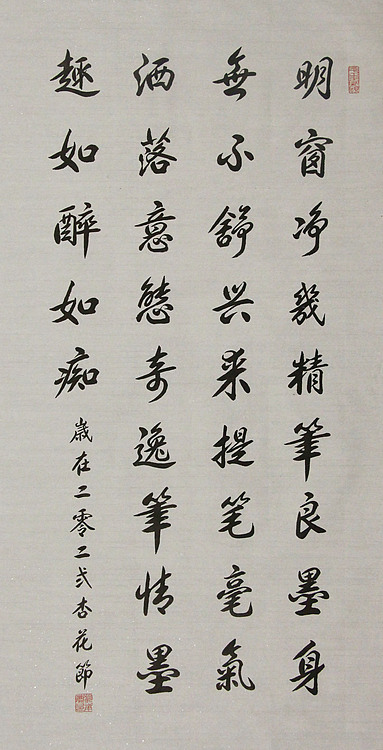 明窗净幾精筆良墨身
無不舒兴来提笔毫氣
洒落意態奇逸筆情墨
趣如醉如痴
歲在二零二弍杏花節